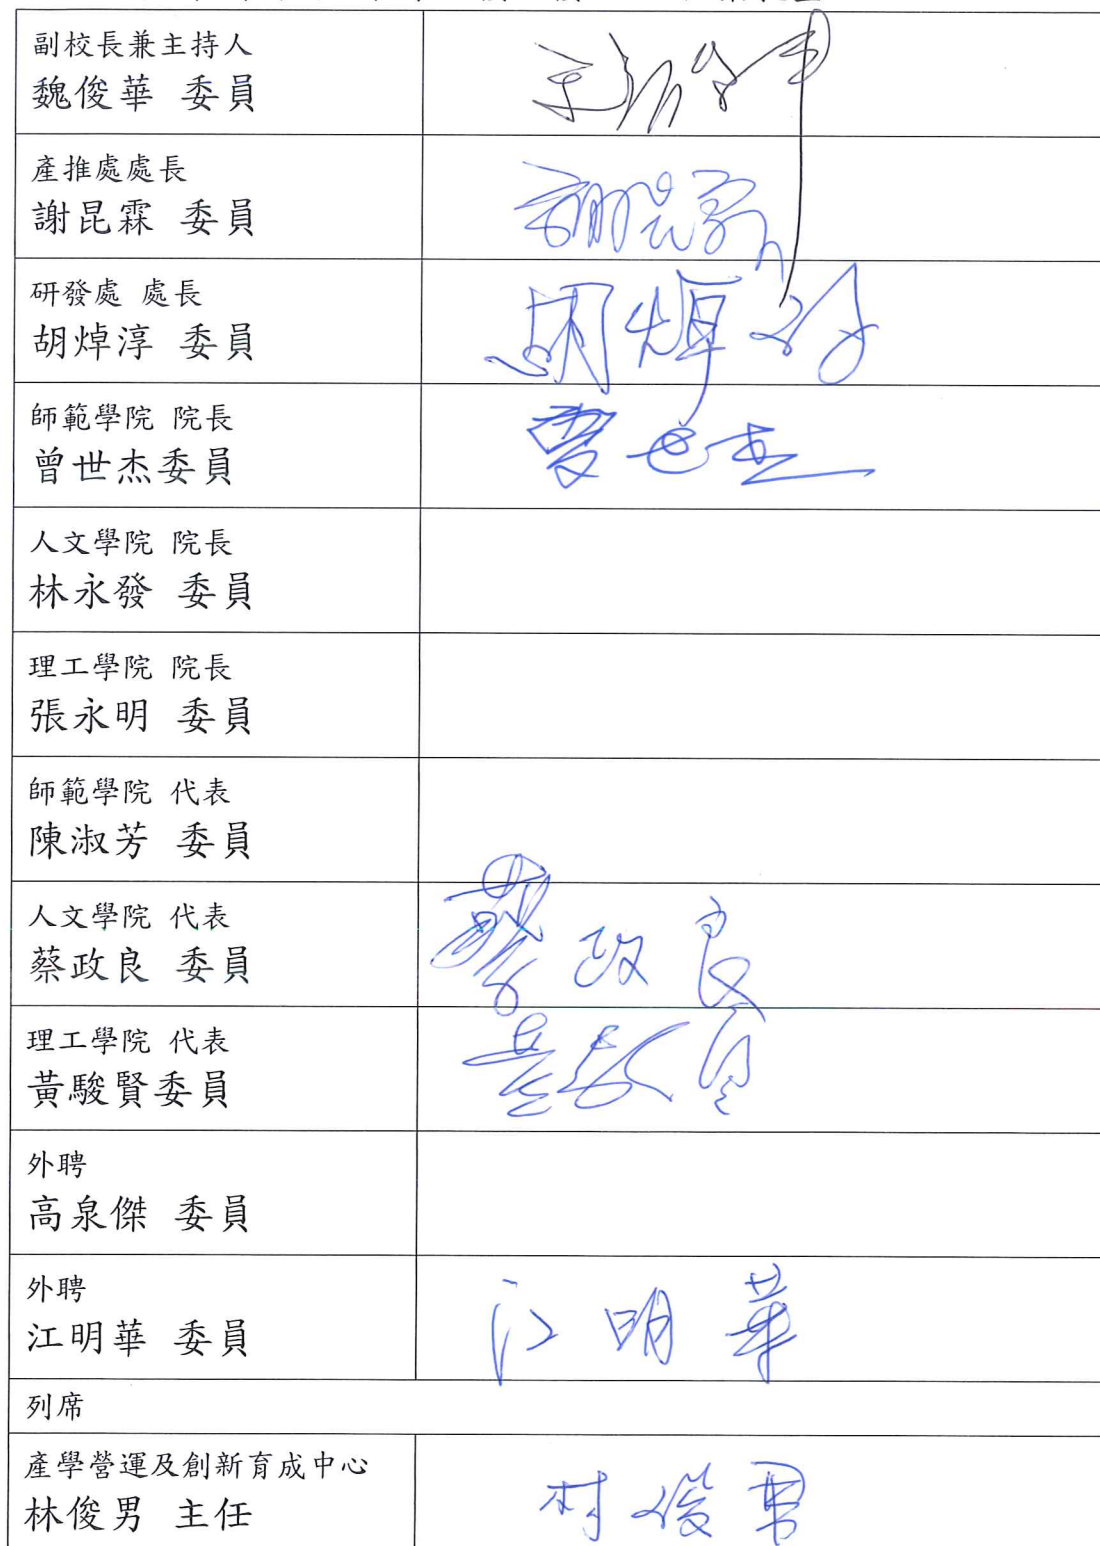 副校長兼主持人
魏俊華 委員
產推處處長
謝昆霖 委員
謝昆霖
研發處 處長
胡焯淳 委員
胡焯淳
師範學院 院長
曾世杰委員
曾世杰
人文學院 院長
林永發 委員
理工學院 院長
張永明 委員
師範學院 代表
陳淑芳 委員
人文學院 代表
蔡政良 委員
蔡政良
理工學院 代表
黃駿賢委員
外聘
高泉傑 委員
外聘
江明華 委員
江明華
列席
產學營運及創新育成中心
林俊男 主任
林俊男